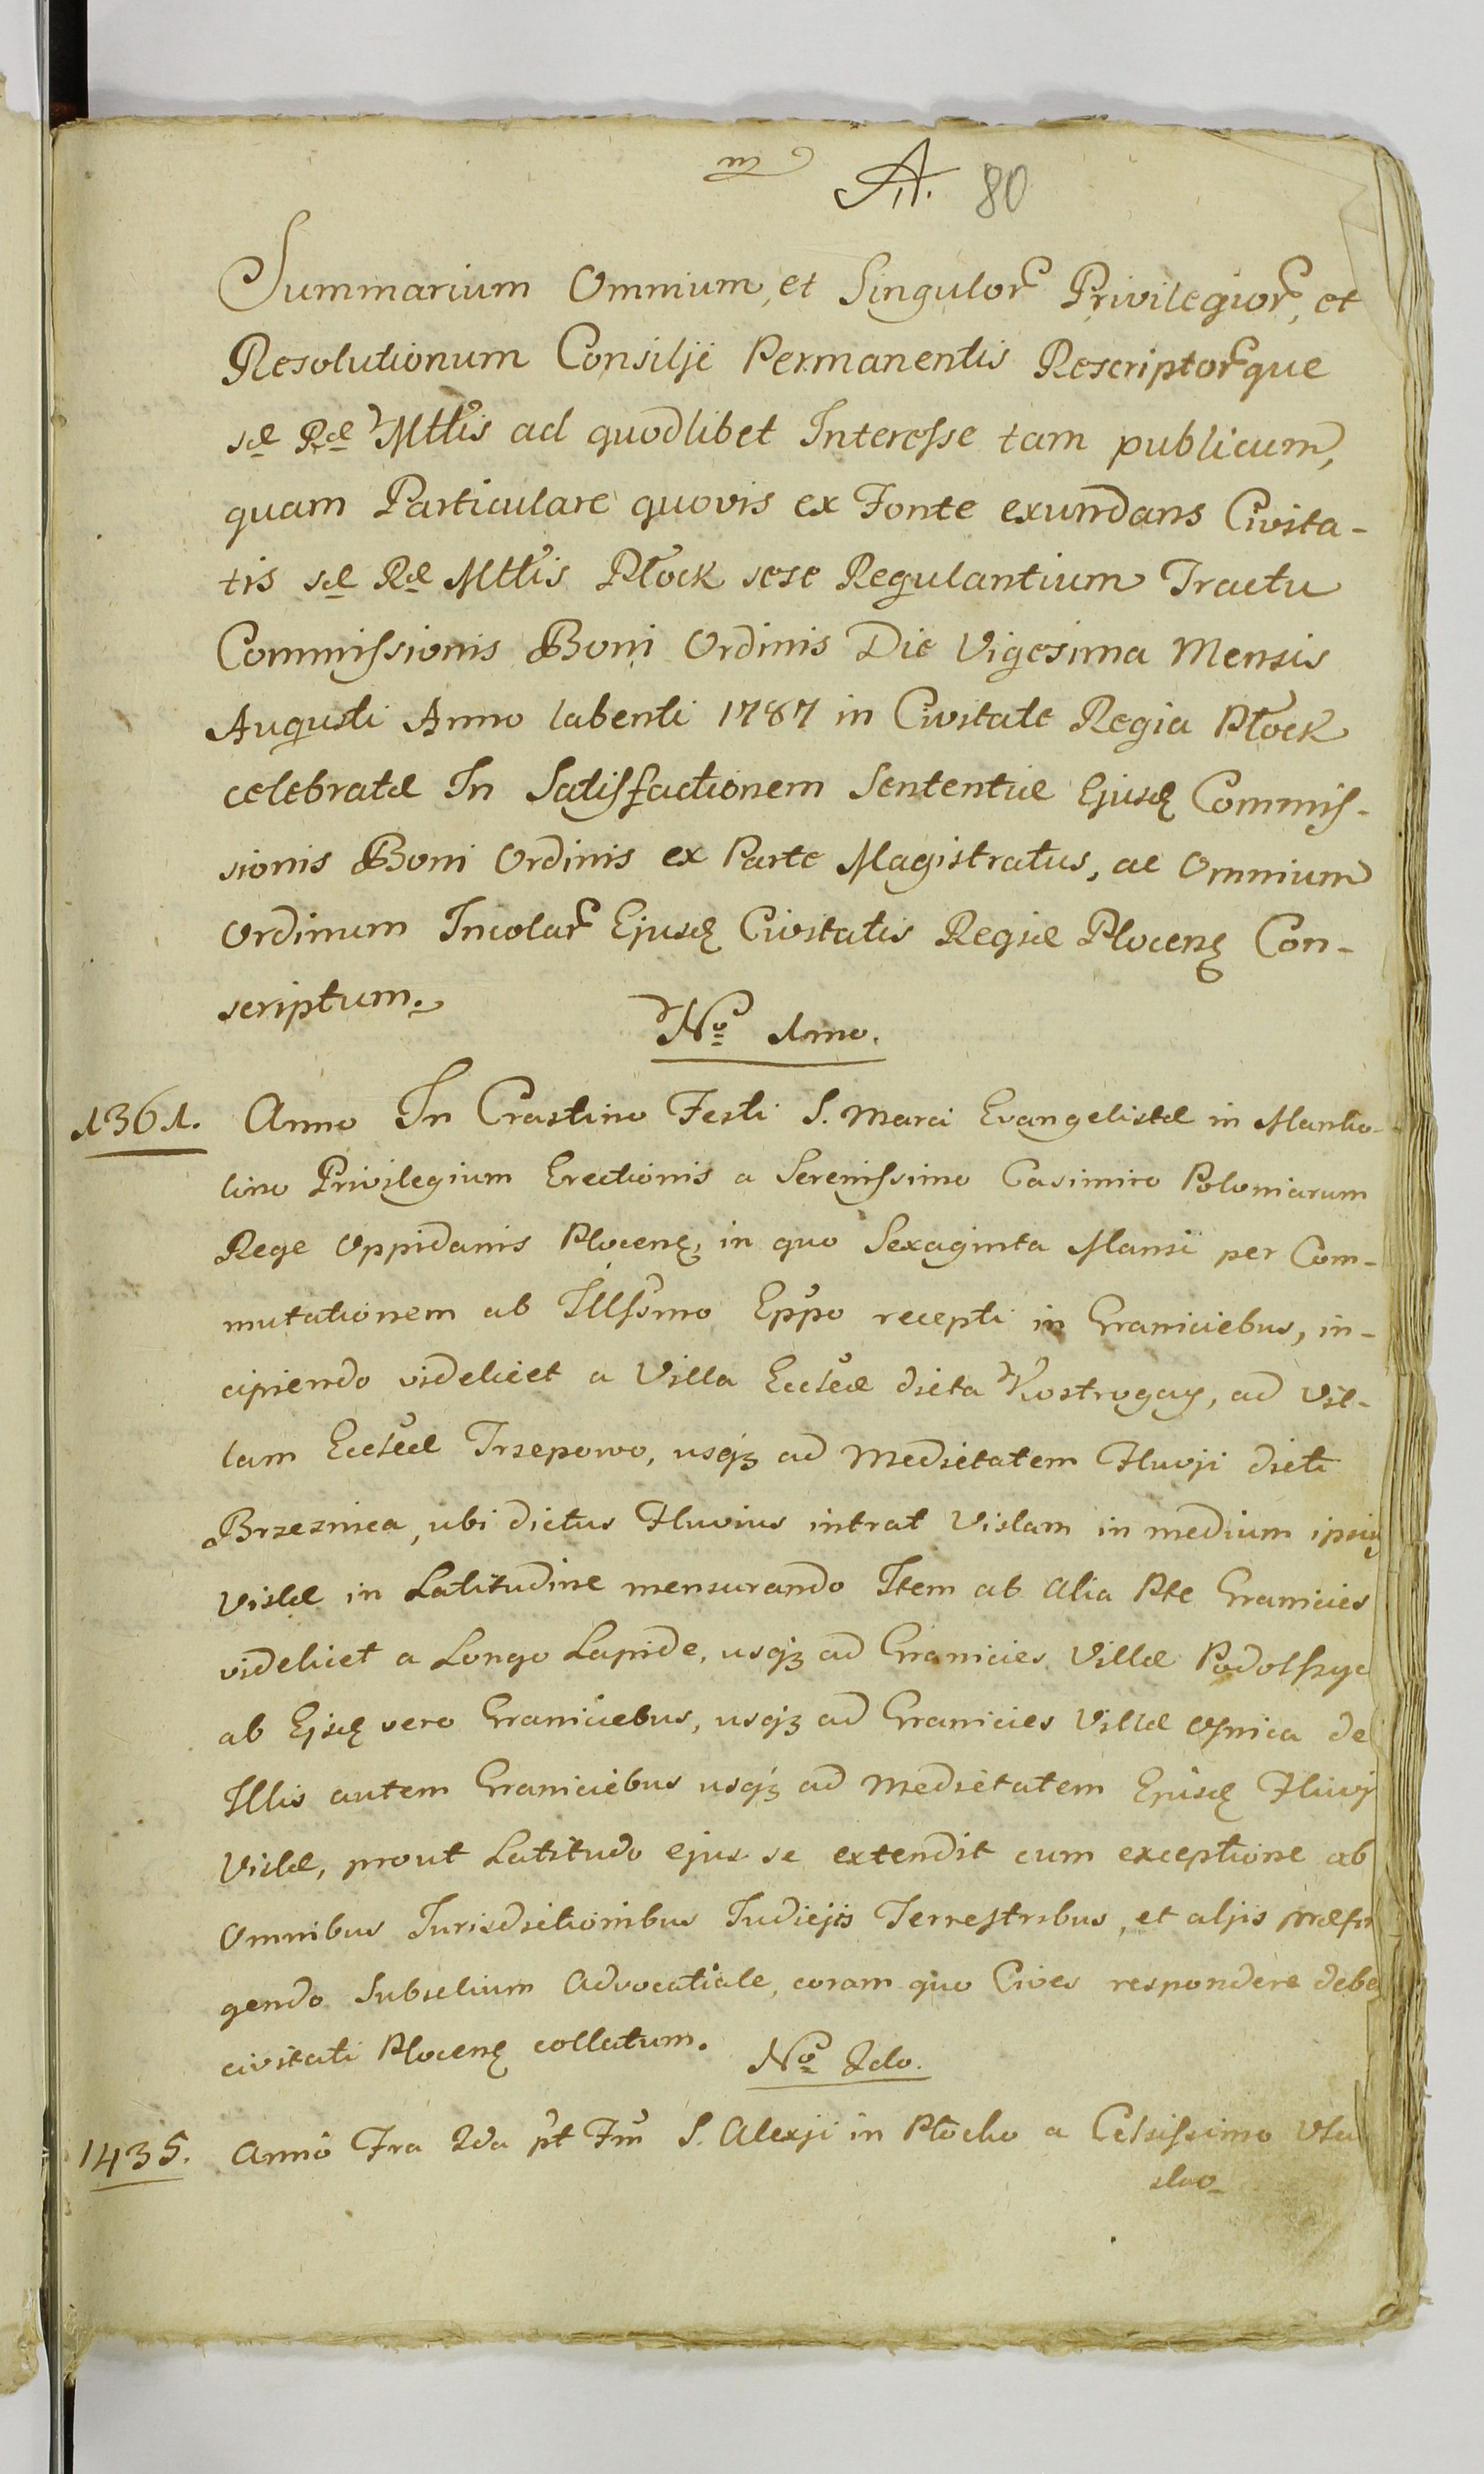 A. 80
Summarium Omnium, et Singulor Privilegior, et
Resolutionum Consilji Permanentis Rescriptorque
sæ Ræ Mttis ad quodlibet Interesse tam publicum,
quam Particulare quovis ex Fonte exundans Civita-
tis sæ Ræ Mttis Płock sese Regulantium Tractu
Commissionis Boni Ordinis Die Vigesima Mensis
Augusti Anno labenti 1787 in Civitate Regia Płock
celebratæ In Satisfactionem Sententiæ Ejusd Commis-
sionis Boni Ordinis ex Parte Magistratus, ac Omnium
Ordinum Incolar Ejusd Civitatis Regiæ Plocens Con-
scriptum.
No 1mo.
1361. Anno In Crastino Festi S. Marci Evangelistæ in
lino Privilegium Erectionis a Serenissimo Casimiro Poloniarum
Rege Oppidanis Plocens, in quo Sexaginta Mansi per Com-
mutationem ab Illsmo Eppo recepti in Graniciebus, in-
cipiendo videlicet a Villa Ecclæ dicta Kostrogay, ad Vil-
lam Ecclæ Trzepowo, usq3 ad Medietatem Fluvji dicti
Brzeznica, ubi dictus Fluvius intrat Vislam in medium ipsius
Vislæ in Latitudine mensurando Item ab alia Pte Granicies
videlicet a Longo Lapide, usq3 ad Granicies Villæ
ab Ejsd vero Graniciebus, usq3 ad Granicies Villæ de
Illis autem Graniciebus usq3 ad Medietatem Ejusd Fluvj
Vislæ, prout Latitudo ejus se extendit cum exceptione ab
Omnibus Jurisdictionibus Judicijs Terrestribus, et aljis
gendo Subselium Advocatiale, coram quo Cives respondere
civitati Plocens collatum.
No 2do.
1435. Anno Fra 2da pt Fm S. Alexji in Płocko a Celsissimo